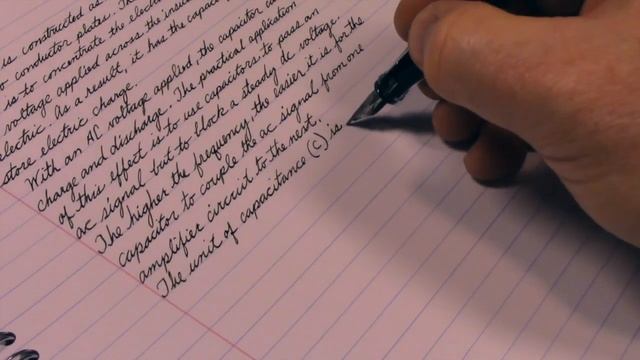 is constructed as
or conductor plates. Th
is to concentrate the elect
voltage applied across the insu
electric. As a result, it has the capac
store electric charge.
With an AC voltage applied, the capacitor ca
charge and discharge. The practical application
of this effect is to use capacitors to pass an
ac signal but to block a steady dc voltage.
The higher the frequency, the easier it is for the
capacitor to couple the ac signal from one
amplifier circuit to the next.
The unit of capacitance (C) is